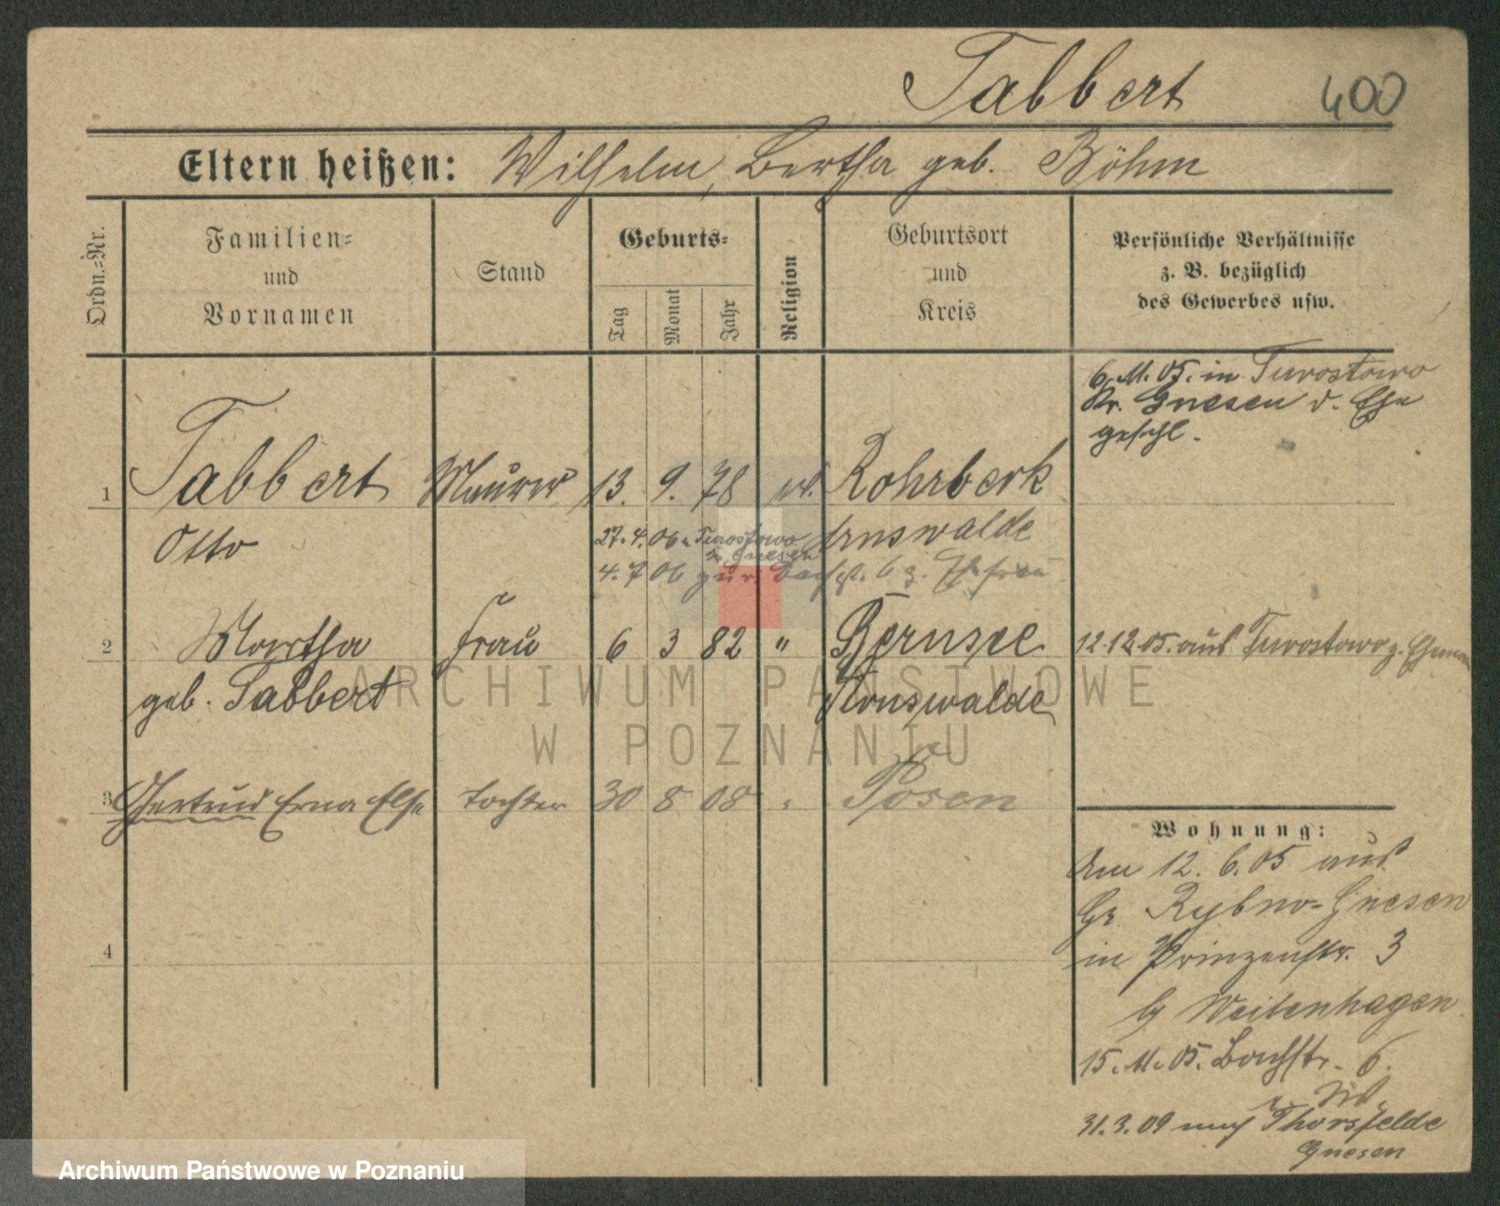 Tabbert 400
Eltern heißen: Wilhelm, Bertha geb. Böhm
Ordn.-Nr.
Familien-
und
Vornamen
Stand
Geburts-
Tag
Monat
Jahr
Religion
Geburtsort
und
Kreis
Persönliche Verhältnisse
z. B. bezüglich
des Gewerbes usw.
6. 11. 05. in Turostowo
Kr. Gnesen d. Ehe
geschl.
1 Tabbert Maurer 13. 9. 78 ev. Rohrbeck
Otto Arnswalde
27. 4. 06 n Turostowo
Kr. Gnesen
4. 7 06 zur. Bachst. 6 z. Ehefrau
2 Martha Frau 6 3 82 " Bernsee 12.12.05. aus Turostowo z. Ehemann
geb. Tabbert Arnswalde
3 Gertrud Erna Else Tochter 30 8 08 " Posen
4
Wohnung:
Am 12. 6. 05 aus
Gr. Rybno-Gnesen
in Prinzenstr. 3
by Weitenhagen
15. 11. 05. Bachstr. 6.
31. 3. 09 nach Thorsfelde
Gnesen
ARCHIWUM PAŃSTWOWE
W POZNANIU
Archiwum Państwowe w Poznaniu